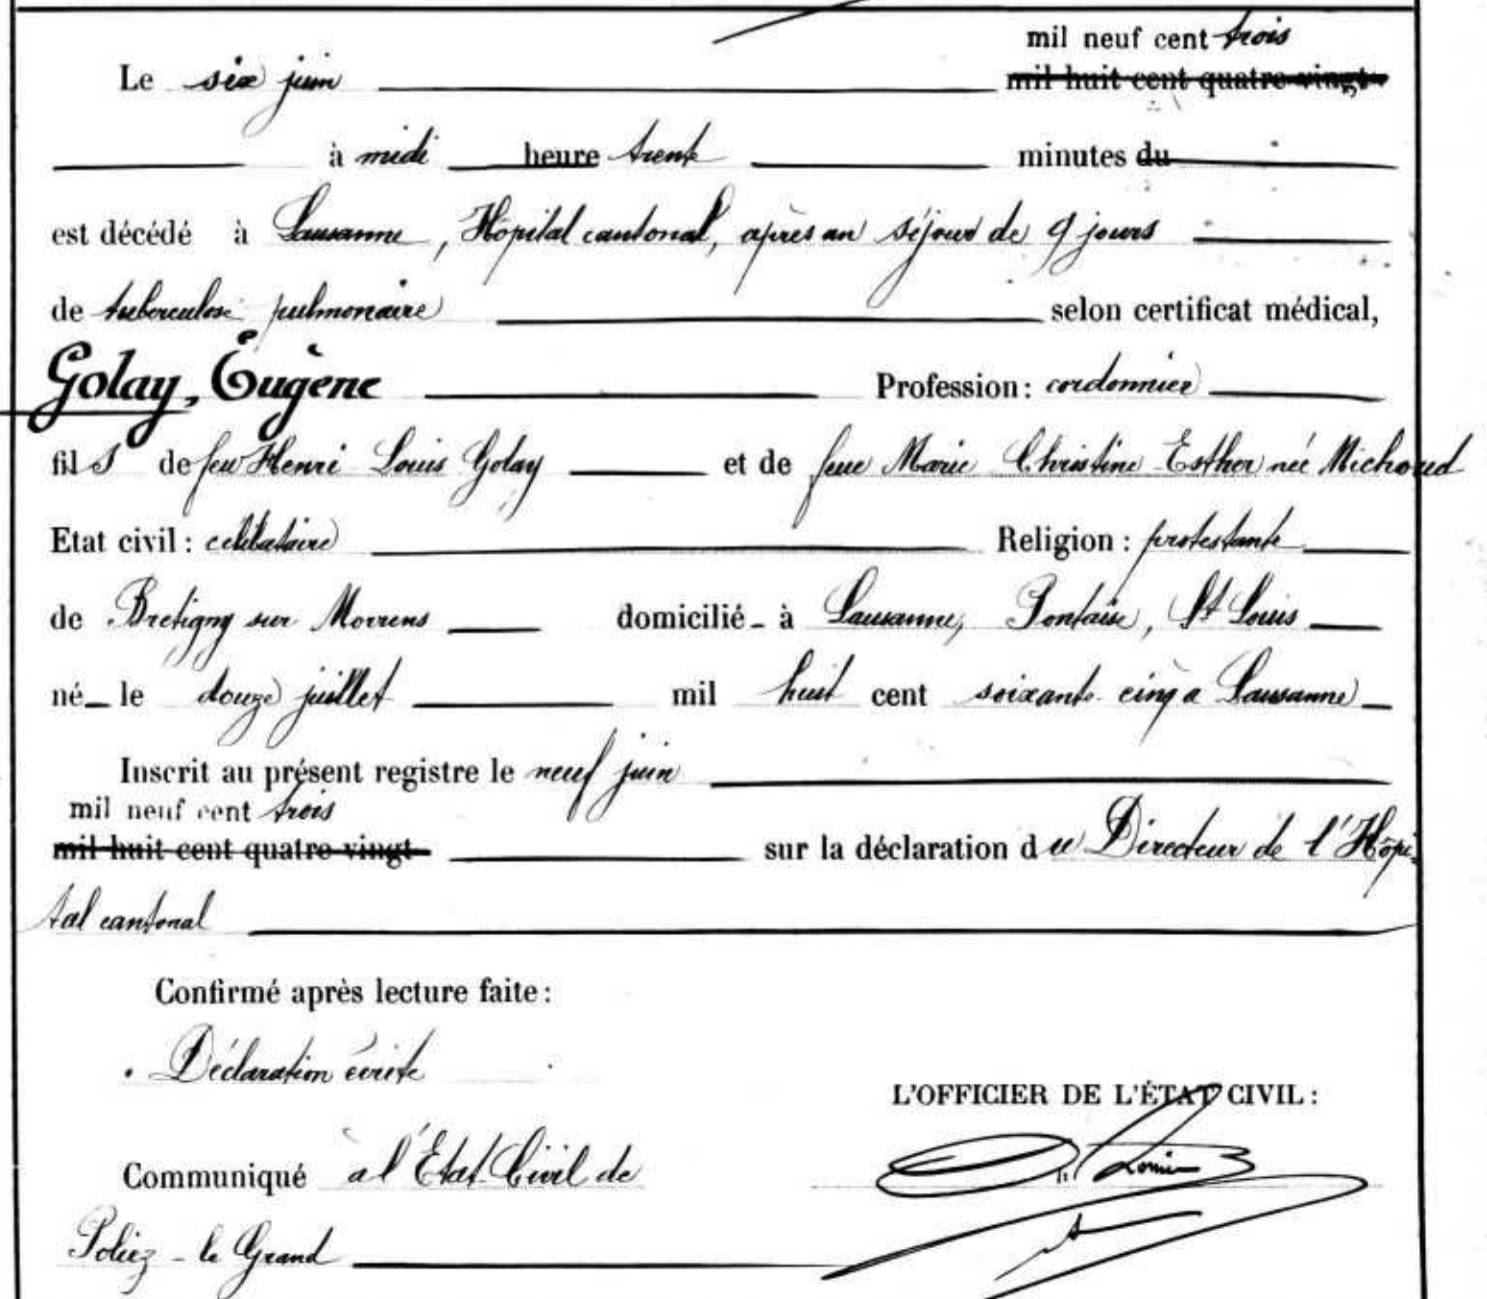 mil neuf cent trois
Le six juin mil huit cent quatre-vingt
à midi heure trente minutes du
est décédé à Lausanne, Hôpital cantonal, après un séjour de 9 jours
de tuberculose pulmonaire selon certificat médical,
Golay, Eugène Profession: cordonnier
fils de feu Henri Louis Golay et de feue Marie Christine Esther née Michoud
Etat civil: célibataire Religion: protestante
de Bretigny sur Morrens domicilié à Lausanne, Pontaise, St Louis
né le douze juillet mil huit cent soixante cinq a Lausanne
Inscrit au présent registre le neuf juin
mil neuf cent trois
mil huit cent quatre-vingt sur la déclaration du Directeur de l'Hôpi-
tal cantonal
Confirmé après lecture faite:
Déclaration écrite
L'OFFICIER DE L'ÉTAT CIVIL:
Communiqué a l'Etat Civil de
Poliez-le Grand